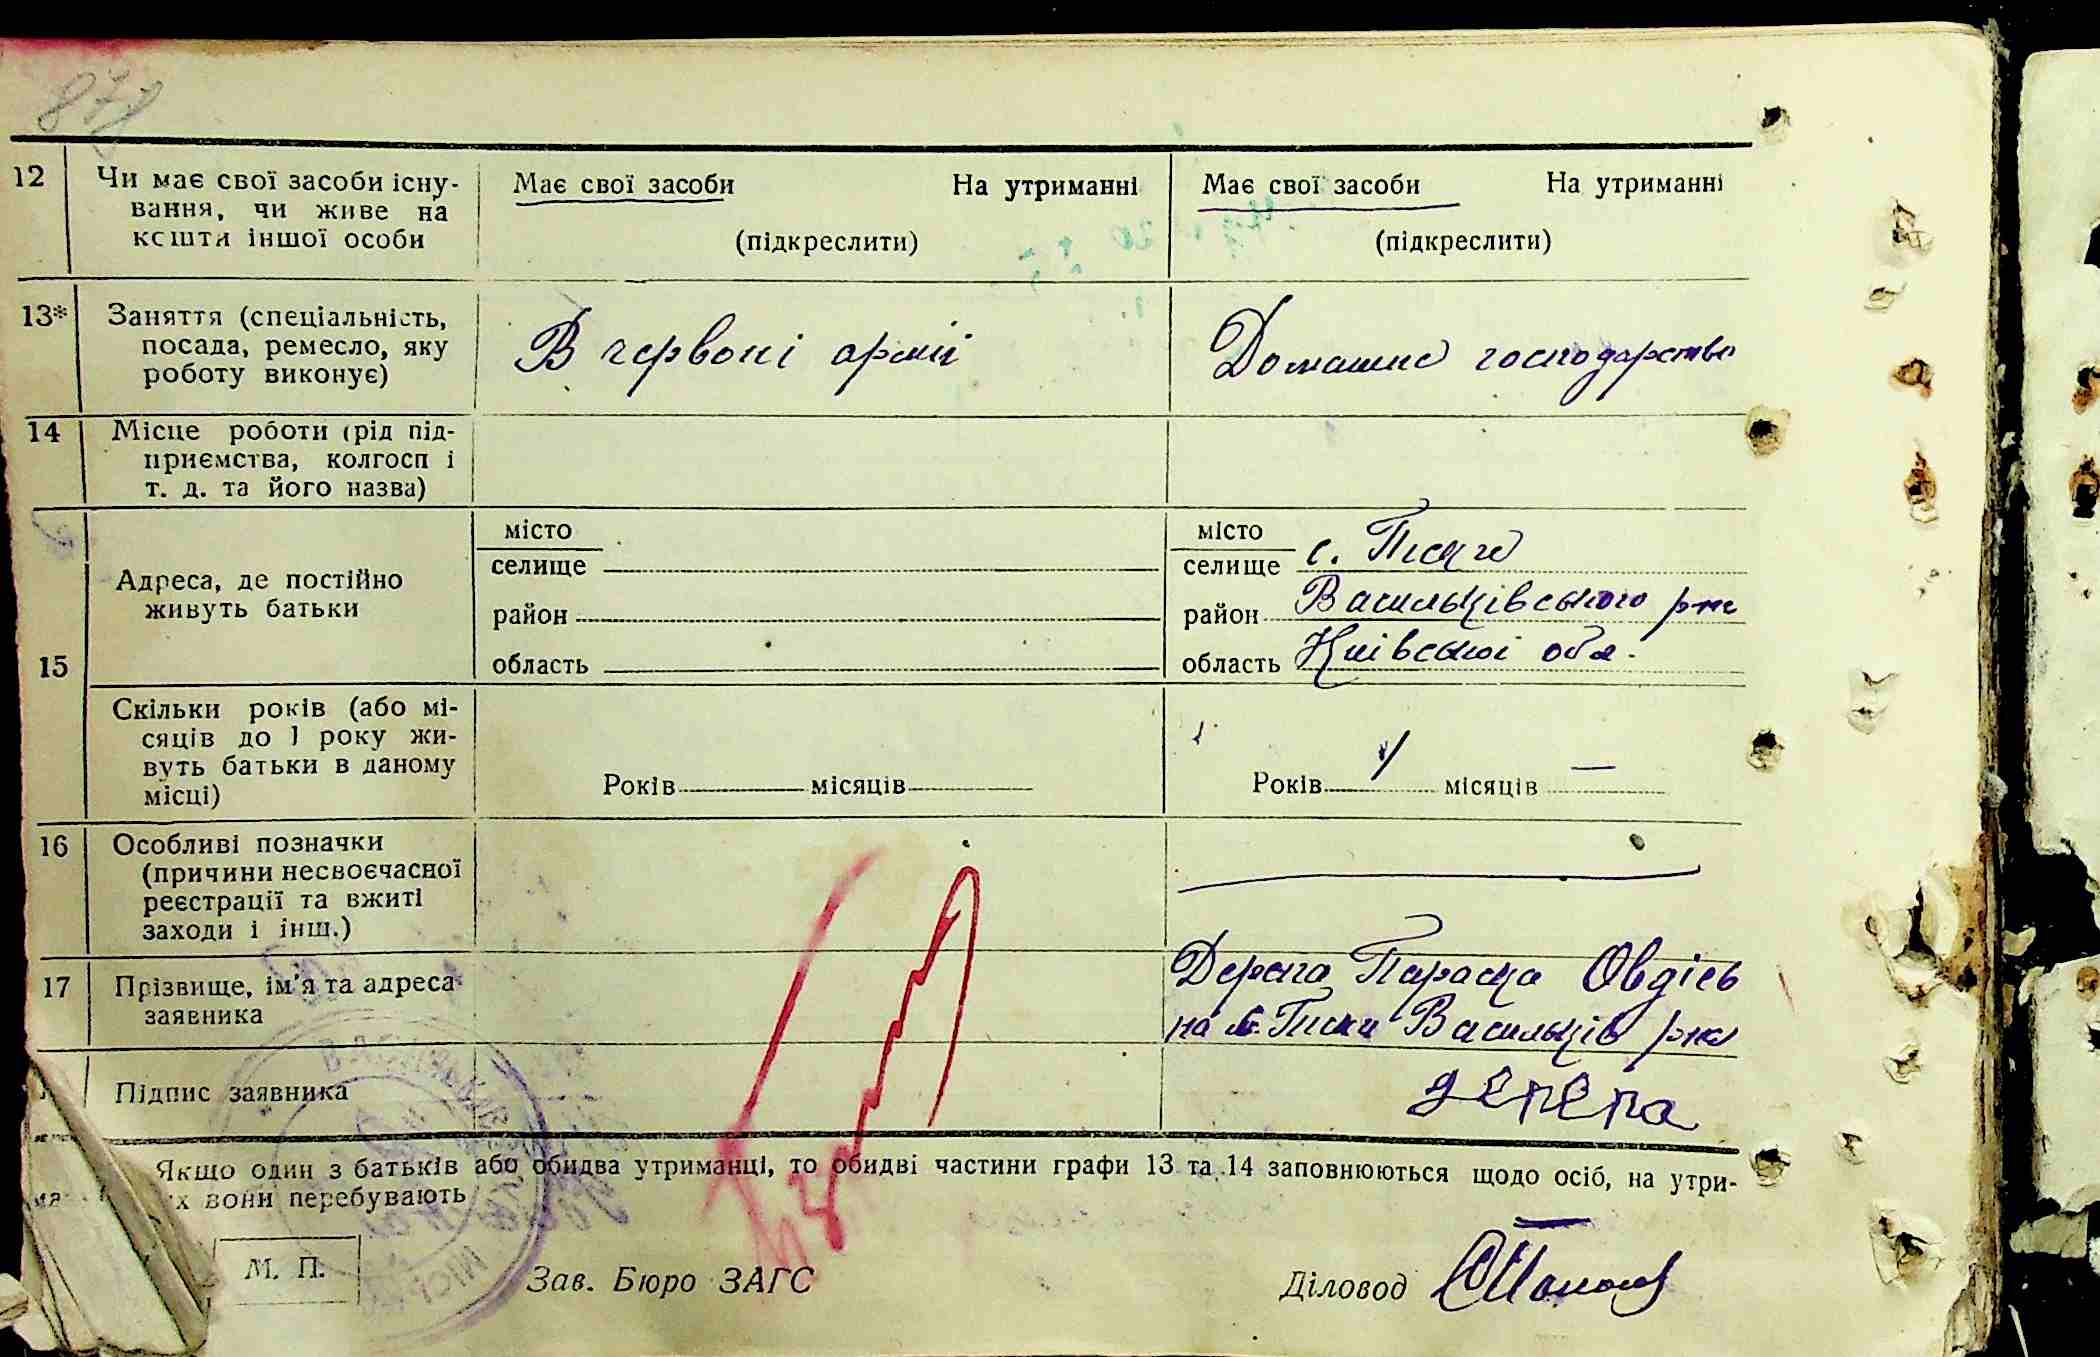 12 Чи має свої засоби існу-
вання, чи живе на
кошти іншої особи
Має свої засоби На утриманні
(підкреслити)
Має свої засоби На утриманні
(підкреслити)
13* Заняття (спеціальність,
посада, ремесло, яку
роботу виконує)
В червоні армії
Домашнє господарство
14 Місце роботи (рід під-
приємства, колгосп і
т. д. та його назва)
15
Адреса, де постійно
живуть батьки
місто
селище
район
область
місто
селище с.
район Васильківського р-на
область Київської обл.
Скільки років (або мі-
сяців до 1 року жи-
вуть батьки в даному
місці)
Років місяців
Років місяців —
16 Особливі позначки
(причини несвоєчасної
реєстрації та вжиті
заходи і інш.)
17 Прізвище, ім'я та адреса
заявника
Параска Овдієв
на с. Васильків р-на
Підпис заявника
Якщо один з батьків або обидва утриманці, то обидві частини графи 13 та 14 заповнюються щодо осіб, на утри-
х вони перебувають
М. П.
Зав. Бюро ЗАГС
Діловод